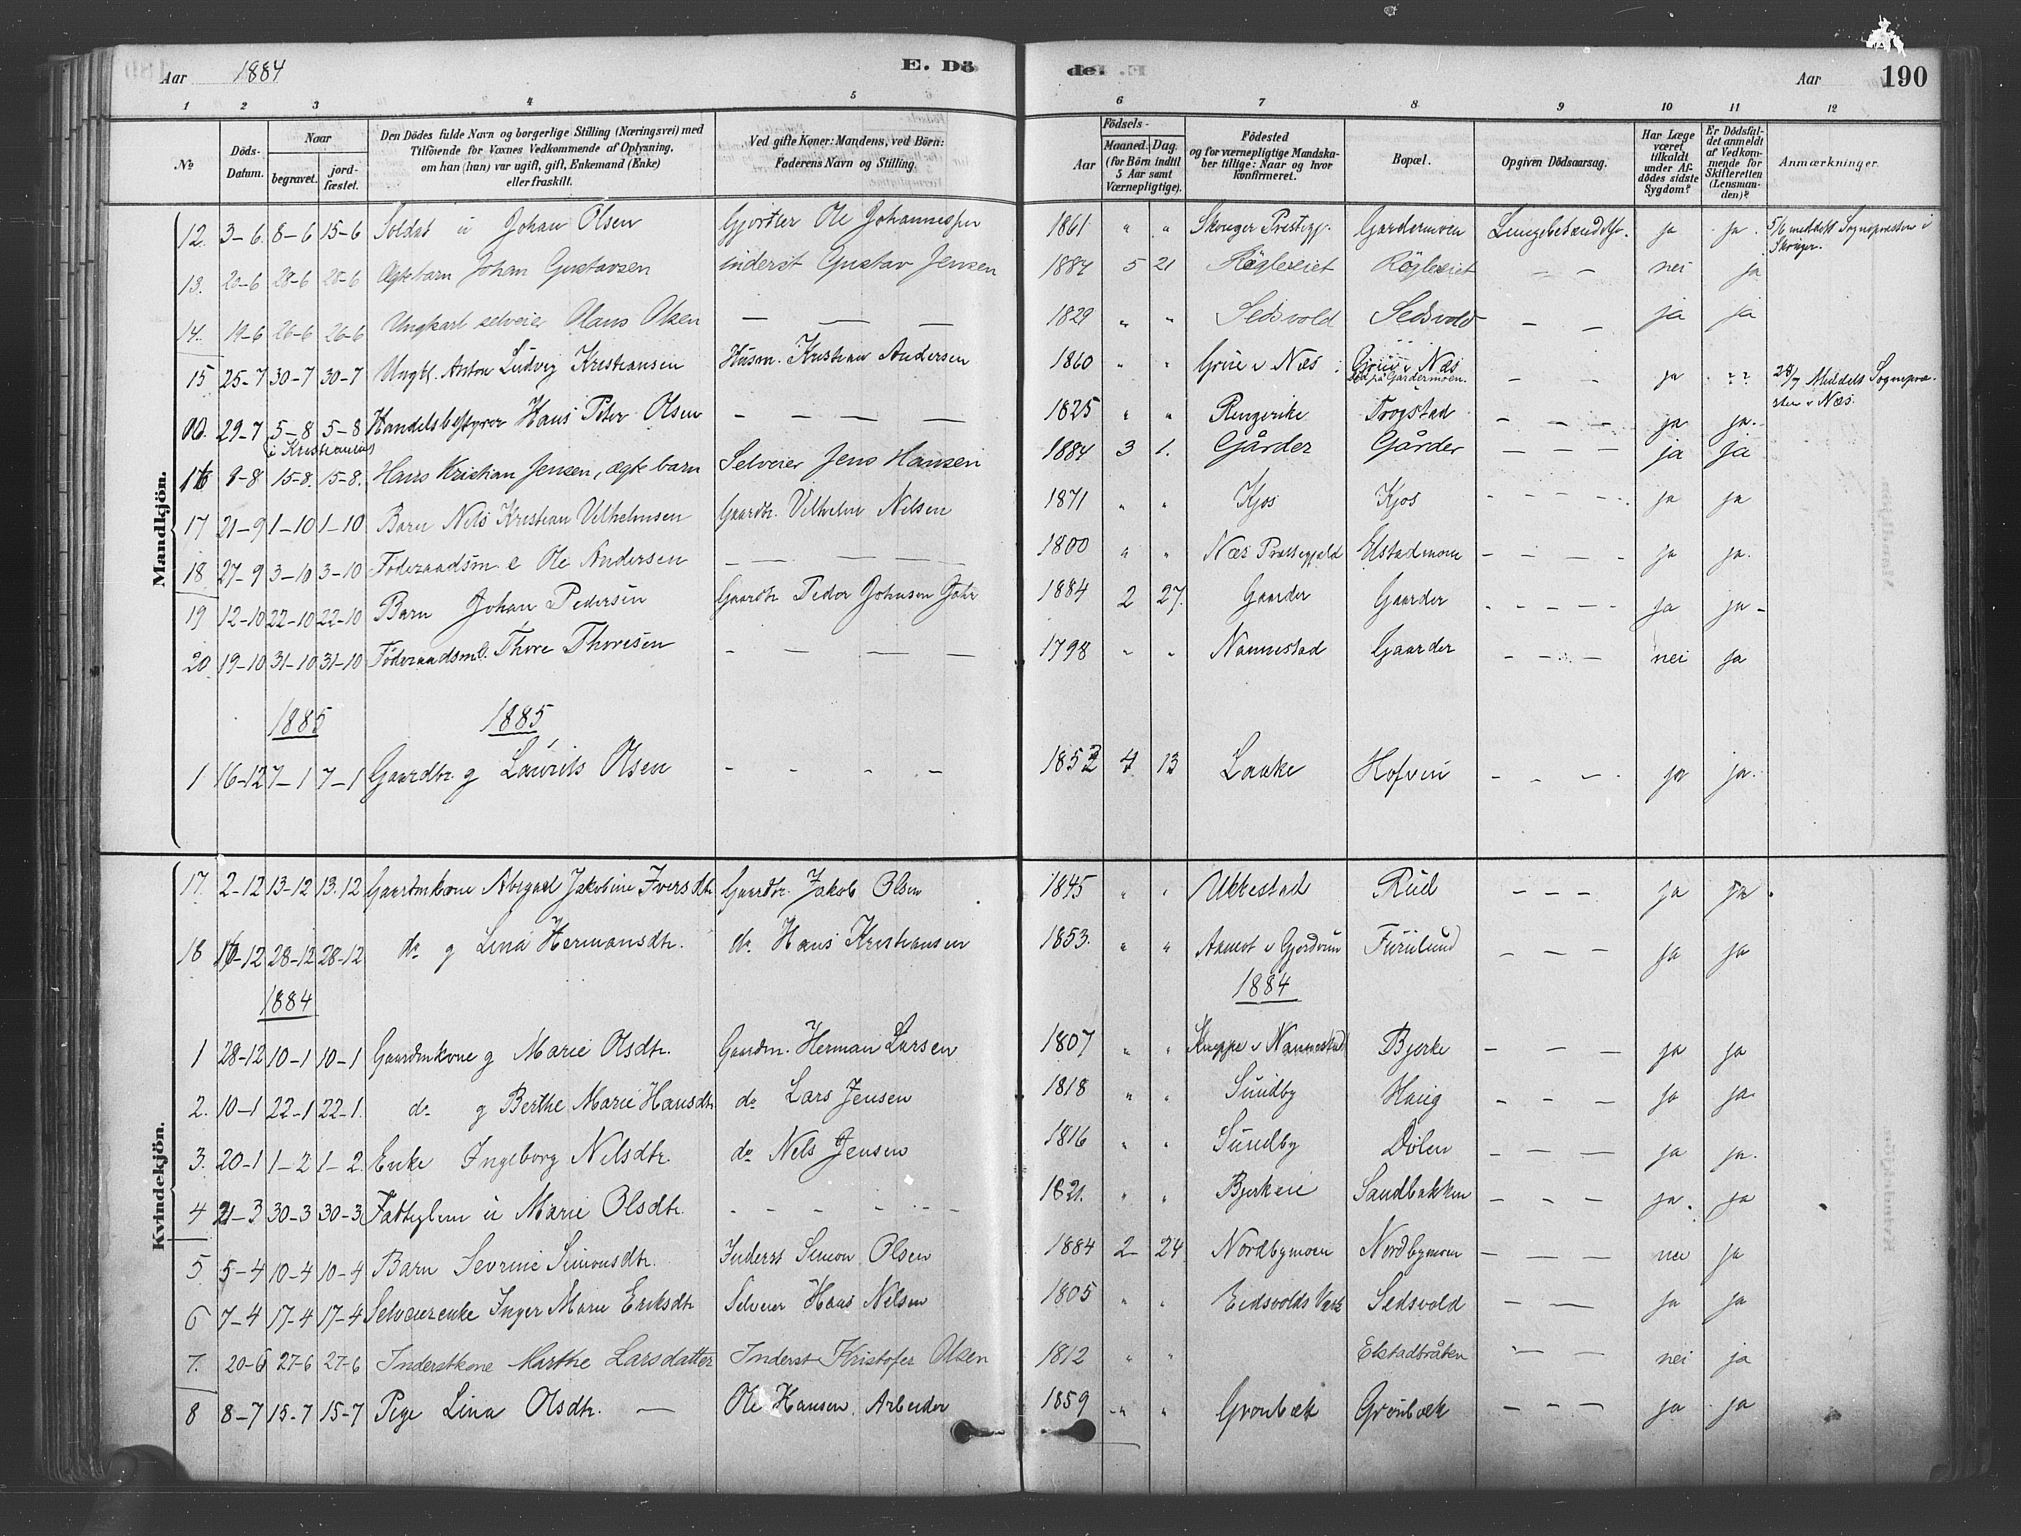 Aar 1884 E. Dö
de. Aar 190
1 2 3 4 5 6 7 8 9 10 11 12
No
Döds-Datum.
Naar
begravet. jordfæstet.
Den Dödes fulde Navn og borgerlige Stilling (Næringsvei) med
Tilföiende for Voxnes Vedkommende af Oplysning,
om han (hun) var ugift, gift, Enkemand (Enke)
eller fraskilt.
Ved gifte Koner: Mandens, ved Börn:
Faderens Navn og Stilling.
Födsels-
Aar
Maaned. Dag.
(for Börn indtil
5 Aar samt
Værnepligtige).
Födested
og for værnepligtige Mandskaber tillige: Naar og hvor
konfirmeret.
Bopæl.
Opgiven Dödsaarsag.
Har Læge
været
tilkaldt
under Afdödes sidste
Sygdom?
Er Dödsfaldet anmeldt
af Vedkommende for
Skifteretten
(Lensmanden)?
Anmærkninger.
Mandkjön.
12. 3-6. 8-6 15-6 Soldat u Johan Olsen Gjortler Ole Johannessen 1861 " " Prestegj. Gardermoen ja ja. 5/6 meddelt Sognepresten i
13. 20-6 28-6 28-6 Ægte barn Johan Gustavsen inderst Gustav Jensen 1884 5 21 Röglereiet Röglereiet — — nei ja
14. 19-6 26-6 26-6 Ungkarl selveier Hans Olsen — — — 1829 " " Sedsvold Sedsvold — — ja ja
15 25-7 30-7 30-7 Ungkl. Anton Ludvig Kristiansen Husm. Kristian Andersen 1860 " " i Næs i Næs — — ja 28/7 Meddelt
på Gardermoen. i Næs.
29-7 5-8 5-8 Handelsbestyrer Hans Peter Olsen — — — — 1825 " " Ringerike Trogstad — — ja ja.
i Kristiania
16 9-8 15-8. 15-8. Hans Kristian Jensen, ægte barn Selveier Jens Hansen 1884 3 1. Gårder Gårder — — — ja ja
17 21-9 1-10 1-10 Barn Nils Kristian Vilhelmsen Gaardbr. Vilhelm Nilsen 1871 " " Kjos Kjos - - - - ja ja
18 27-9 3-10 3-10 Föderaadsm. e Ole Andersen — — — — 1800 " " Næs Prestegjeld Elstadmoen - — — — ja ja.
19 12-10 22-10 22-10 Barn Johan Pedersen Gaardbr Peder Johnsen 1884 2 27. Gaarder Gaarder - - - - - ja ja
20 19-10 31-10 31-10 Föderaadsm. Thore Thoresen - — — — 1798 " " Nannestad Gaarder — — — nei ja
1885 1885
1 16-12 7-1 7-1 Gaardbr g Laurits Olsen - - - - 1852 4 13 Laake Hofvin - - - ja ja.
Kvindekjön.
17. 2-12 13-12 13.12 Gaardmkone Abigael Jakobine Iversdtr Gaardbr. Jakob Olsen 1845 " " Ukkestad Rud - - - ja ja
18 16-12 28-12 28-12 do g Lina Hermansdtr. do. Hans Kristiansen 1853. " " Aamot i Gjerdrum Furulund - - - ja ja
1884 1884
1 28-12 10-1 10-1 Gaardmkone g Marie Olsdtr. Gaardm. Herman Larsen 1807 " " i Nannestad Bjerke — — — ja ja
2. 10-1 22-1 22-1. do g Berthe Marie Hansdtr do Lars Jensen 1818 " " Sundby Haug — — — ja ja
3. 20-1 1-2 1-2. Enke Ingeborg Nilsdtr. do Nels Jensen 1816 " " Sundby Dölen — — — ja ja.
4 21-3 30-3 30-3 Fattiglem u Marie Olsdtr. - - - - - 1821. " " Bjerkeie Sandbakken — — — ja. ja
5. 5-4 10-4 10-4 Barn Sevrine Simonsdtr. Inderst Simon Olsen 1884 2 24 Nordbymoen Nordbymoen — — — nei ja
6 7-4 17-4 17-4 Selveierenke Inger Marie Eriksdtr Selveier Hans Nilsen 1805 " " Eidsvolds Værk Sedsvold — — ja ja
7. 20-6 27-6 27-6 Inderstkone Marthe Larsdatter Inderst Kristofer Olsen 1812 " " Elstadbråten — — nei ja
8 8-7 15-7 15-7 Pige Lina Olsdtr. — Ole Hansen Arbeider 1859 " " Grönbæk Grönbæk — — — ja ja